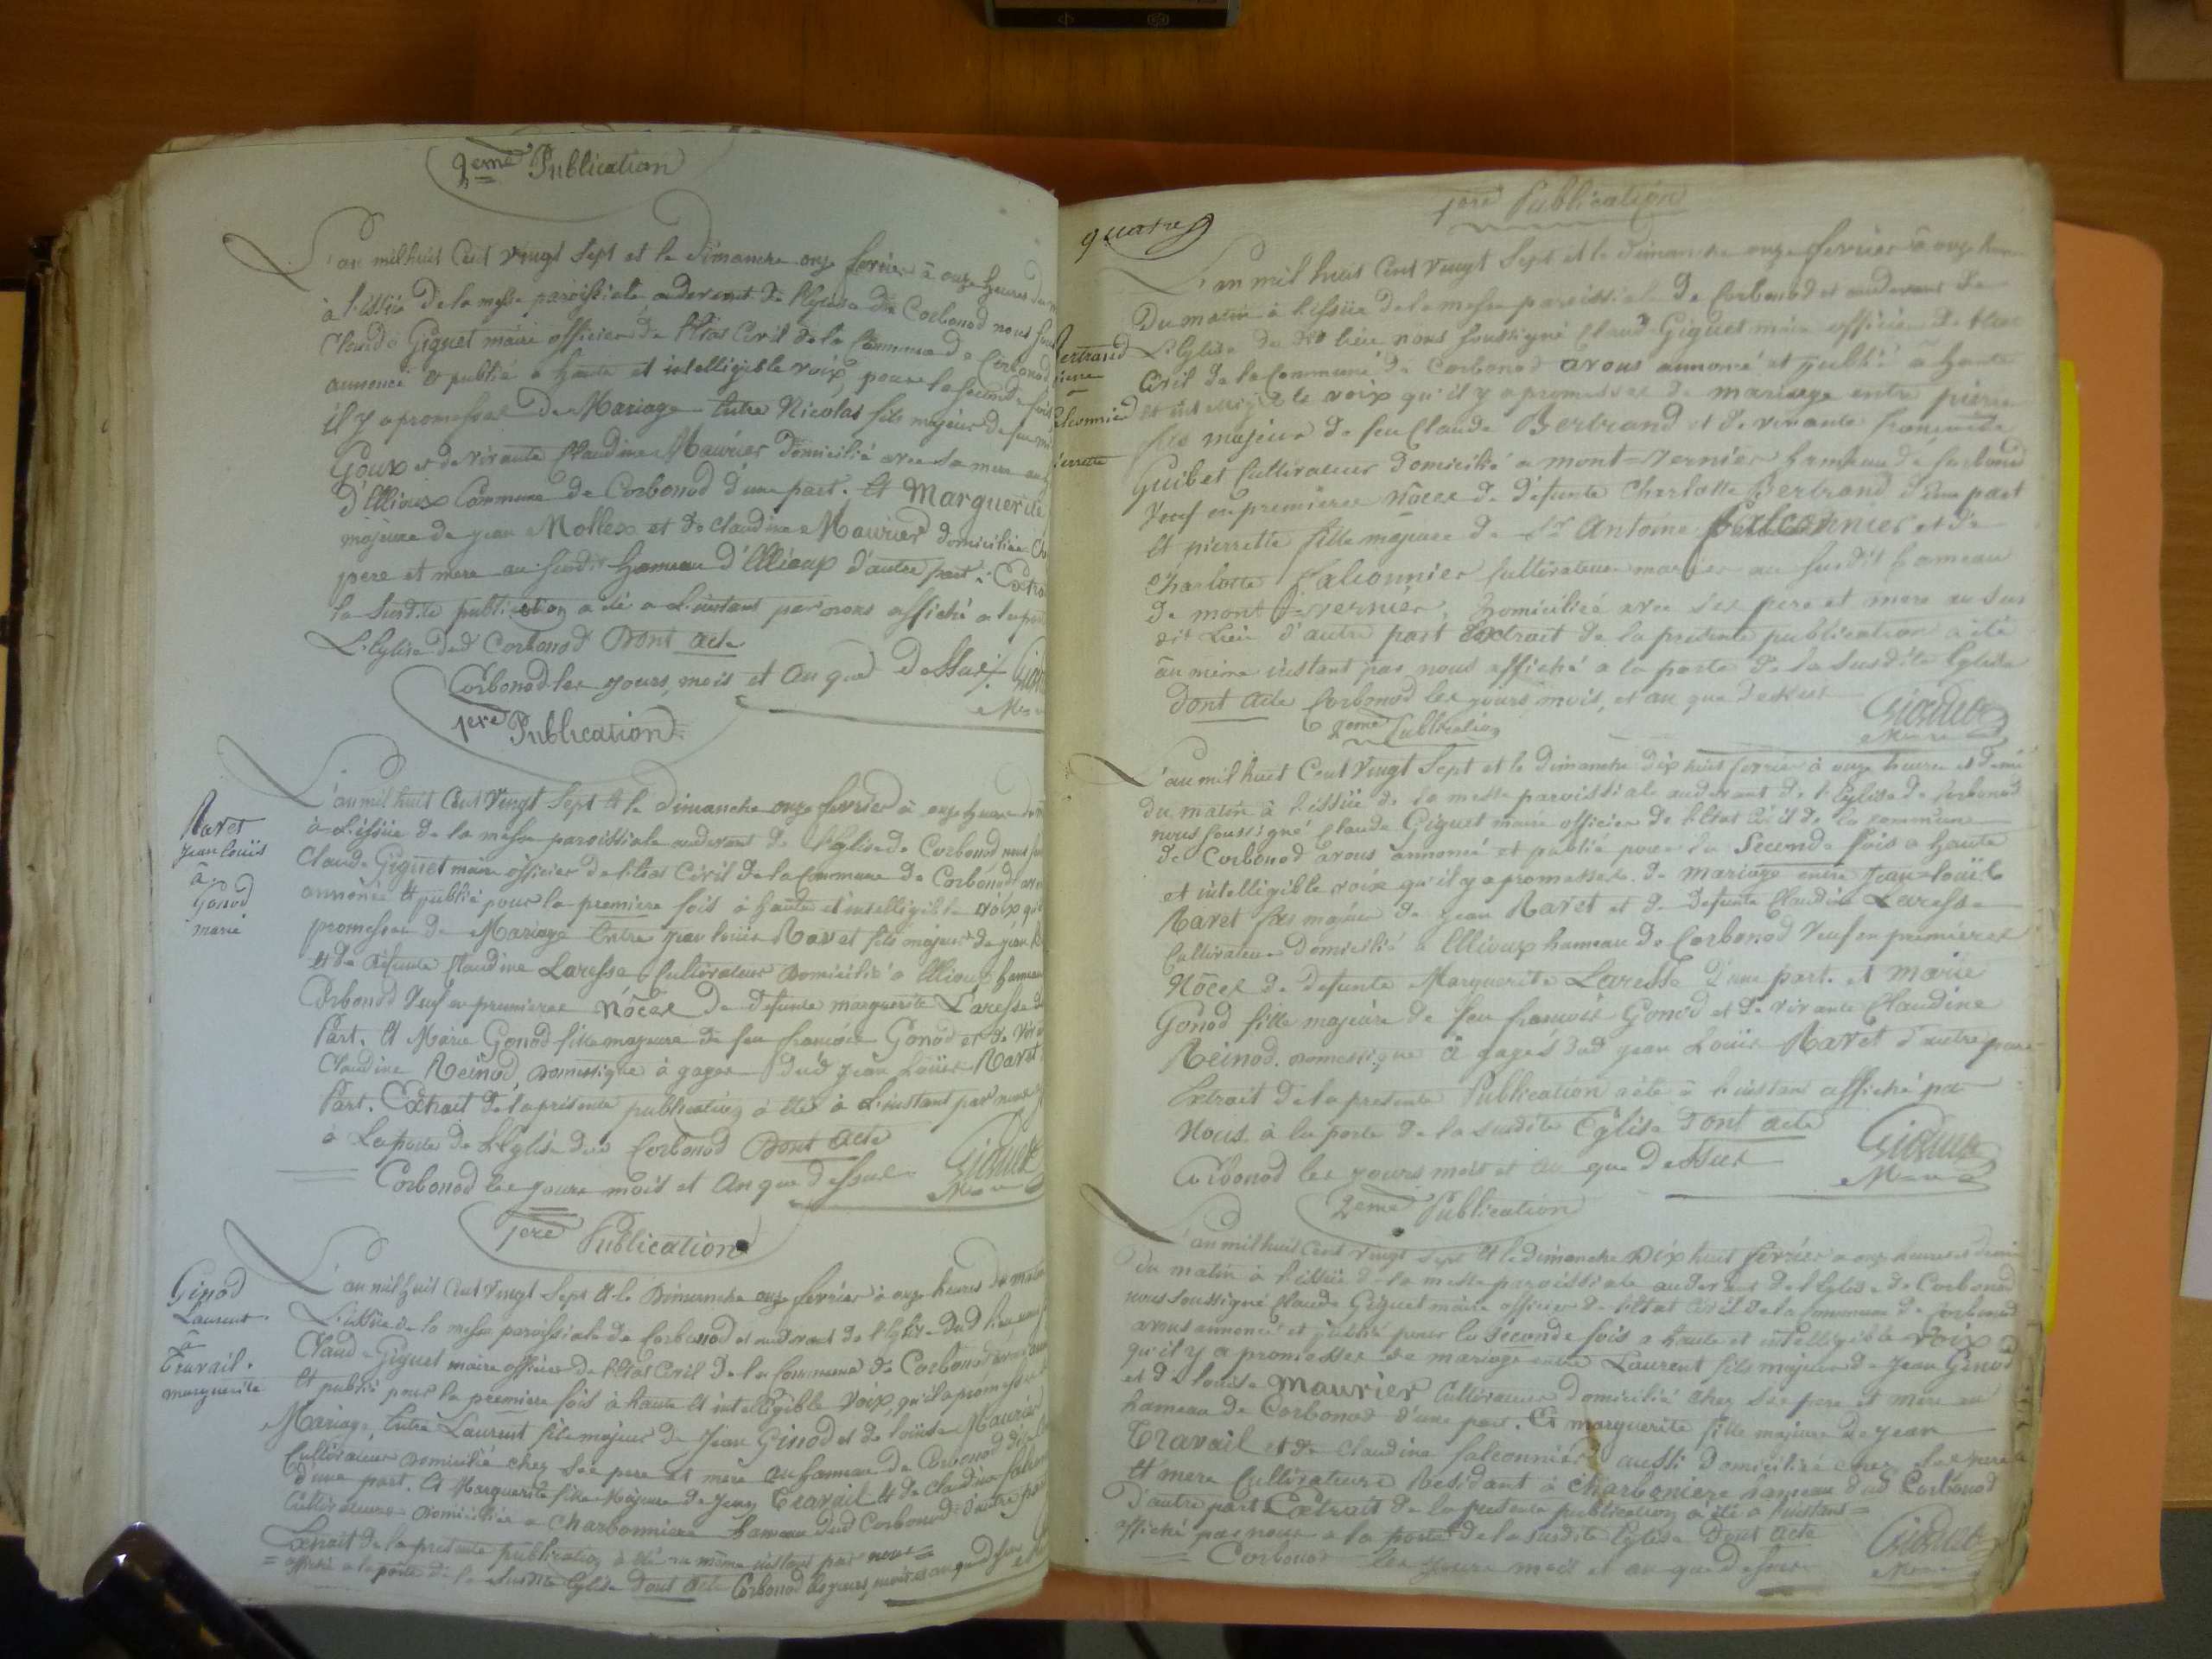 2eme Publication
L'an mil huit Cent vingt Sept et le Dimanche onze fevrier à onze heures du
à l'issüe de la messe paroissiale audevant de l'Eglise de Corbonod nous
Claude Giguet maire officier de l'Etat Civil de la Commune de Corbonod
annoncé et publié a haute et intelligible voix, pour la seconde fois
il y a promesses de Mariage Entre Nicolas fils majeur de feu
Goux et de vivante Claudine Maurier Domicilié avec sa mere au
d'Ellioux Commune de Corbonod d'une part. Et Marguerite
majeure de jean Mollex et de Claudine Maurier domiciliée
pere et mere au susdit hameau d'Ellioux d'autre part.
la Susdite publication a été a L'instant par nous affiché a la
L'Eglise dud Corbonod Dont acte
Corbonod les jours, mois et an que Dessus
1ere Publication
Ravet
Jean louis
à
Gonod
marie
L'an mil huit Cent Vingt Sept et le Dimanche onze fevrier à onze heures
à L'issüe de la messe paroissiale audevant de l'Eglise de Corbonod nous
Claude Giguet maire officier de l'Etat Civil de la Commune de Corbonod
annoncé et publié pour la premiere fois à haute et intelligible voix
promesses de Mariage Entre Jean louis Ravet fils majeur de jean
et de defunte Claudine Laresse Cultivateur Domicilié a Ellioux hameau
Corbonod Veuf en premieres Nôces De defunte marguerite Laresse
Part. Et Marie Gonod fille majeure de feu françois Gonod et de
Claudine Reinod, Domestique à gages dud jean Louis Ravet
Part. Extrait de la présente publication à été à L'instant par nous
à La porte de L'Eglise dud Corbonod Dont acte
Corbonod les jours mois et An que dessus
Giguet
Maire
1ere Publication
Ginod
Laurent
à
Travail
marguerite
L'an mil huit Cent Vingt Sept et le Dimanche onze fevrier à onze heures du matin
L'issüe de la messe paroissiale de Corbonod et audevant de l'Eglise dud lieu nous
Claude Giguet maire officier de l'Etat Civil de la Commune de Corbonod
Et publié pour la premiere fois à haute et intelligible Voix, qu'il a promesses
Mariage, Entre Laurent fils majeur de Jean Ginod et de loüise Maurier
Cultivateur Domicilié chez ses pere et mere au hameau de Corbonod
d'une part. Et Marguerite fille Majeure de Jean Travail Et de Claudine
Cultivateurs Domiciliée a Charbonniere hameau dud Corbonod d'autre part
Extrait de la presente publication à été au même instant par nous
affiché a la porte de la Susdite Eglise dont acte Corbonod les jours, mois et an que dessus
quatre
1ere Publication
Bertrand
pierre
à
falconnier
pierrette
L'an mil huit Cent Vingt Sept et le Dimanche onze fevrier à onze
Du matin à l'issüe de la messe paroissiale de Corbonod et audevant de
L'Eglise du dit lieu nous Soussigné Claude Giguet maire officier de l'Etat
Civil de la Commune de Corbonod avons annoncé et publié à haute
Et intelligible voix qu'il y a promesses de mariage entre pierre
fils majeur de feu Claude Bertrand et de vivante françoise
Guibet Cultivateur domicilié a mont-vernier hameau de Corbonod
Veuf en premieres Nôces de défunte Charlotte Bertrand d'une part
Et pierrette fille majeure de Sr Antoine falconnier et de
Charlotte Falconnier Cultivateurs mariés au susdit hameau
de mont-vernier, Domiciliée avec ses pere et mere au sus
dit Lieu d'autre part Extrait de la presente publication a été
au même instant par nous affiché a la porte de la Susdite Eglise
Dont acte Corbonod les jours mois, et an que dessus
Giguet
Maire
2eme Publication
L'an mil huit Cent Vingt Sept et le dimanche dix huit fevrier à onze heures et demi
du matin à l'issüe de la messe paroissiale audevant de l'Eglise de Corbonod
nous soussigné Claude Giguet maire officier de l'Etat Civil de la commune
de Corbonod avons annoncé et publié pour la Seconde fois a haute
et intelligible voix qu'il y a promesses de mariage entre Jean-loüis
Ravet fils majeur de Jean Ravet et de defunte Claudine Laresse
Cultivateur Domicilié a Ellioux hameau de Corbonod Veuf en premieres
Nôces de defunte Marguerite Laresse d'une part. et Marie
Gonod fille majeure de feu françois Gonod et de vivante Claudine
Reinod. Domestique à gages dud Jean Louis Ravet d'autre part
Extrait de la presente Publication a été à l'instant affiché par
Nous à la porte de la susdite Eglise Dont acte
Corbonod les jours mois et an que dessus
Giguet
Maire
2eme Publication
L'an mil huit Cent Vingt Sept et le dimanche Dix huit fevrier a onze heures et demi
du matin à l'issüe de la messe paroissiale audevant de l'Eglise de Corbonod
nous soussigné Claude Giguet maire officier de l'Etat Civil de la Commune de Corbonod
avons annoncé et publié pour la Seconde fois a haute et intelligible voix
qu'il y a promesses de mariage entre Laurent fils majeur de Jean Ginod
et de louise Maurier Cultivateur domicilié chez ses pere et mere au
hameau de Corbonod d'une part. Et marguerite fille majeure de Jean
Travail et de Claudine falconnier aussi Domiciliée chez ses pere
Et mere Cultivateurs Residant à Charboniere hameau dud Corbonod
d'autre part Extrait de la presente publication a été a l'instant
affiché par nous a la porte de la susdite Eglise Dont acte
Corbonod les jours mois et an que dessus
Giguet
Maire